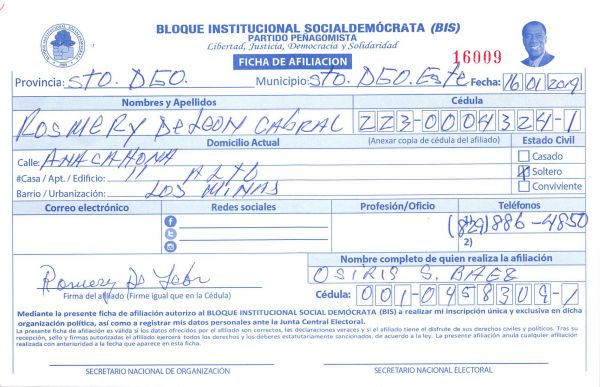 BLOQUE INSTITUCIONAL SOCIALDEMÓCRATA (BIS)
PARTIDO PEÑAGOMISTA
Libertad, Justicia, Democracia y Solidaridad
FICHA DE AFILIACION
16009
Provincia: STO. DGO. Municipio: STO DGO. Este Fecha: 16/01/2019
Nombres y Apellidos Cédula
ROSMERY De LEON CABRAL 223-0004324-1
Domicilio Actual (Anexar copia de cédula del afiliado) Estado Civil
Calle: ANACAHONA Casado
#Casa / Apt. / Edificio: 11 ALTO X Soltero
Barrio / Urbanización: LOS MINAS Conviviente
Correo electrónico Redes sociales Profesión/Oficio Teléfonos
1) (829) 886-4850
2)
Nombre completo de quien realiza la afiliación
OSIRIS S. BAEZ
Firma del afiliado (Firme igual que en la Cédula) Cédula: 001-0458309-1
Mediante la presente ficha de afiliación autorizo al BLOQUE INSTITUCIONAL SOCIAL DEMÓCRATA (BIS) a realizar mi inscripción única y exclusiva en dicha
organización política, así como a registrar mis datos personales ante la Junta Central Electoral.
La presente ficha de afiliación es válida si los datos ofrecidos por el afiliado son correctos, las declaraciones veraces y si el afiliado tiene el disfrute de sus derechos civiles y políticos. Tras su
recepción, sello y firmas autorizadas el afiliado ejercerá todos los derechos y los deberes estatutariamente sancionados, de acuerdo a la ley. La presente afiliación anula cualquier afiliación
realizada con anterioridad a la fecha que aparece en esta ficha.
SECRETARIO NACIONAL DE ORGANIZACIÓN SECRETARIO NACIONAL ELECTORAL